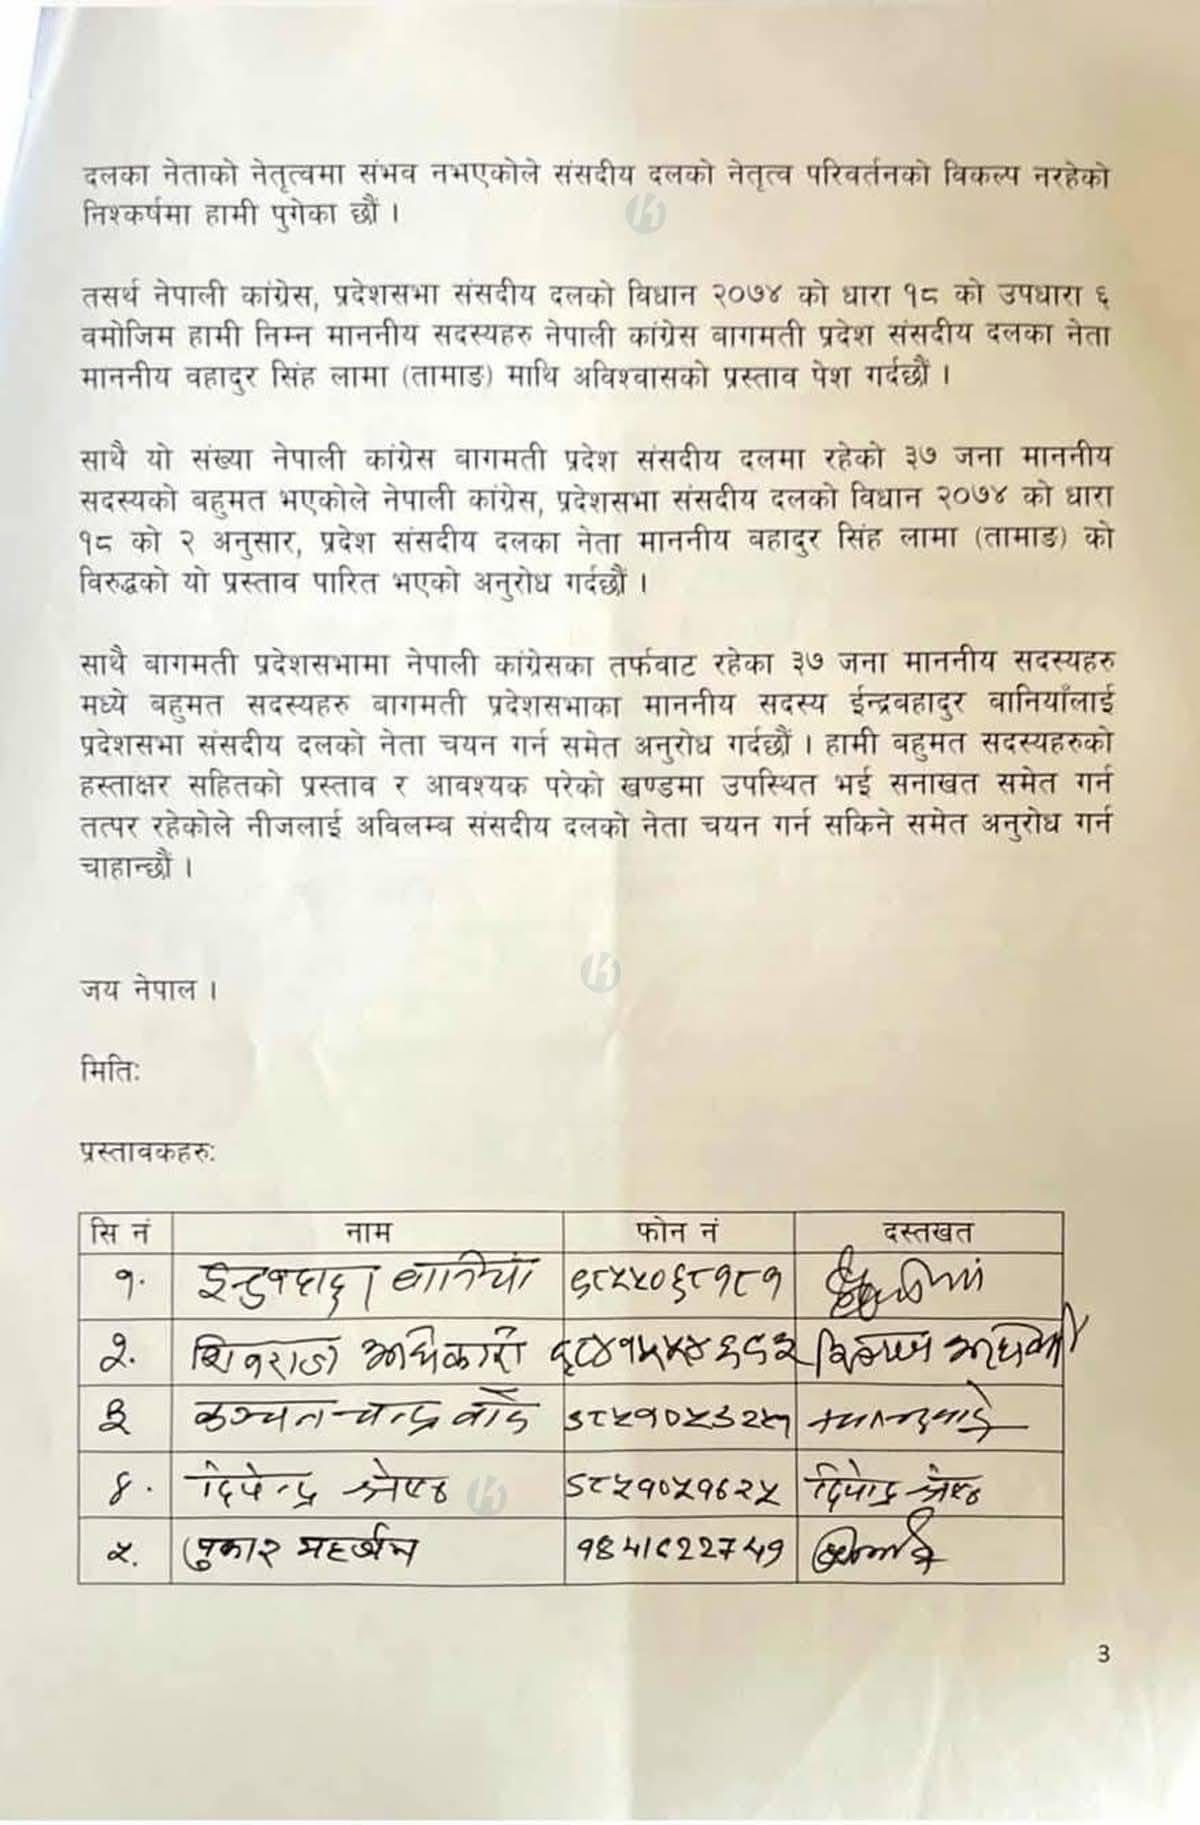 दलका नेताको नेतृत्वमा संभव नभएकोले संसदीय दलको नेतृत्व परिवर्तनको विकल्प नरहेको
निश्कर्षमा हामी पुगेका छौं ।
तसर्थ नेपाली कांग्रेस, प्रदेशसभा संसदीय दलको विधान २०७४ को धारा १८ को उपधारा ६
वमोजिम हामी निम्न माननीय सदस्यहरु नेपाली कांग्रेस वागमती प्रदेश संसदीय दलका नेता
माननीय वहादुर सिंह लामा (तामाङ) माथि अविश्वासको प्रस्ताव पेश गर्दछौं ।
साथै यो संख्या नेपाली कांग्रेस वागमती प्रदेश संसदीय दलमा रहेको ३७ जना माननीय
सदस्यको वहुमत भएकोले नेपाली कांग्रेस, प्रदेशसभा संसदीय दलको विधान २०७४ को धारा
१८ को २ अनुसार, प्रदेश संसदीय दलका नेता माननीय वहादुर सिंह लामा (तामाङ) को
विरुद्धको यो प्रस्ताव पारित भएको अनुरोध गर्दछौं ।
साथै वागमती प्रदेशसभामा नेपाली कांग्रेसका तर्फवाट रहेका ३७ जना माननीय सदस्यहरु
मध्ये वहुमत सदस्यहरु वागमती प्रदेशसभाका माननीय सदस्य ईन्द्रवहादुर वानियाँलाई
प्रदेशसभा संसदीय दलको नेता चयन गर्न समेत अनुरोध गर्दछौं । हामी वहुमत सदस्यहरुको
हस्ताक्षर सहितको प्रस्ताव र आवश्यक परेको खण्डमा उपस्थित भई सनाखत समेत गर्न
तत्पर रहेकोले नीजलाई अविलम्व संसदीय दलको नेता चयन गर्न सकिने समेत अनुरोध गर्न
चाहान्छौं ।
जय नेपाल ।
मितिः
प्रस्तावकहरुः
सि नं नाम फोन नं दस्तखत
१. इन्द्रबहादुर बानियाँ ९८५५०६८१८१
२. शिवराज अधिकारी
३ कञ्चन चन्द्र वादे ९८५१०५३२५५
४. दिपेन्द्र श्रेष्ठ ९८५१०५१६२५ दिपेन्द्र श्रेष्ठ
५. पुकार महर्जन
3